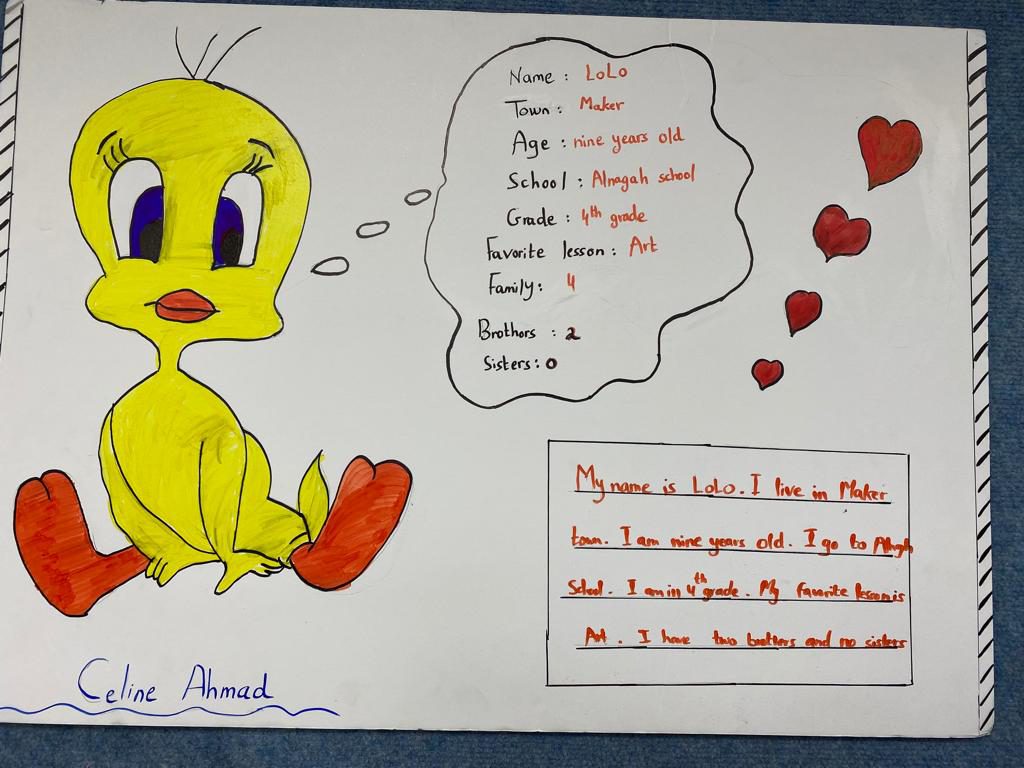 Name : LoLo
Town : Maker
Age : nine years old
School : Alnagah school
Grade : 4th grade
Favorite lesson : Art
Family : 4
Brothors : 2
Sisters : 0
My name is LoLo. I live in Maker
town. I am nine years old. I go to
School. I am in 4th grade. My favorite lesson is
Art. I have two brothers and no sisters
Celine Ahmad